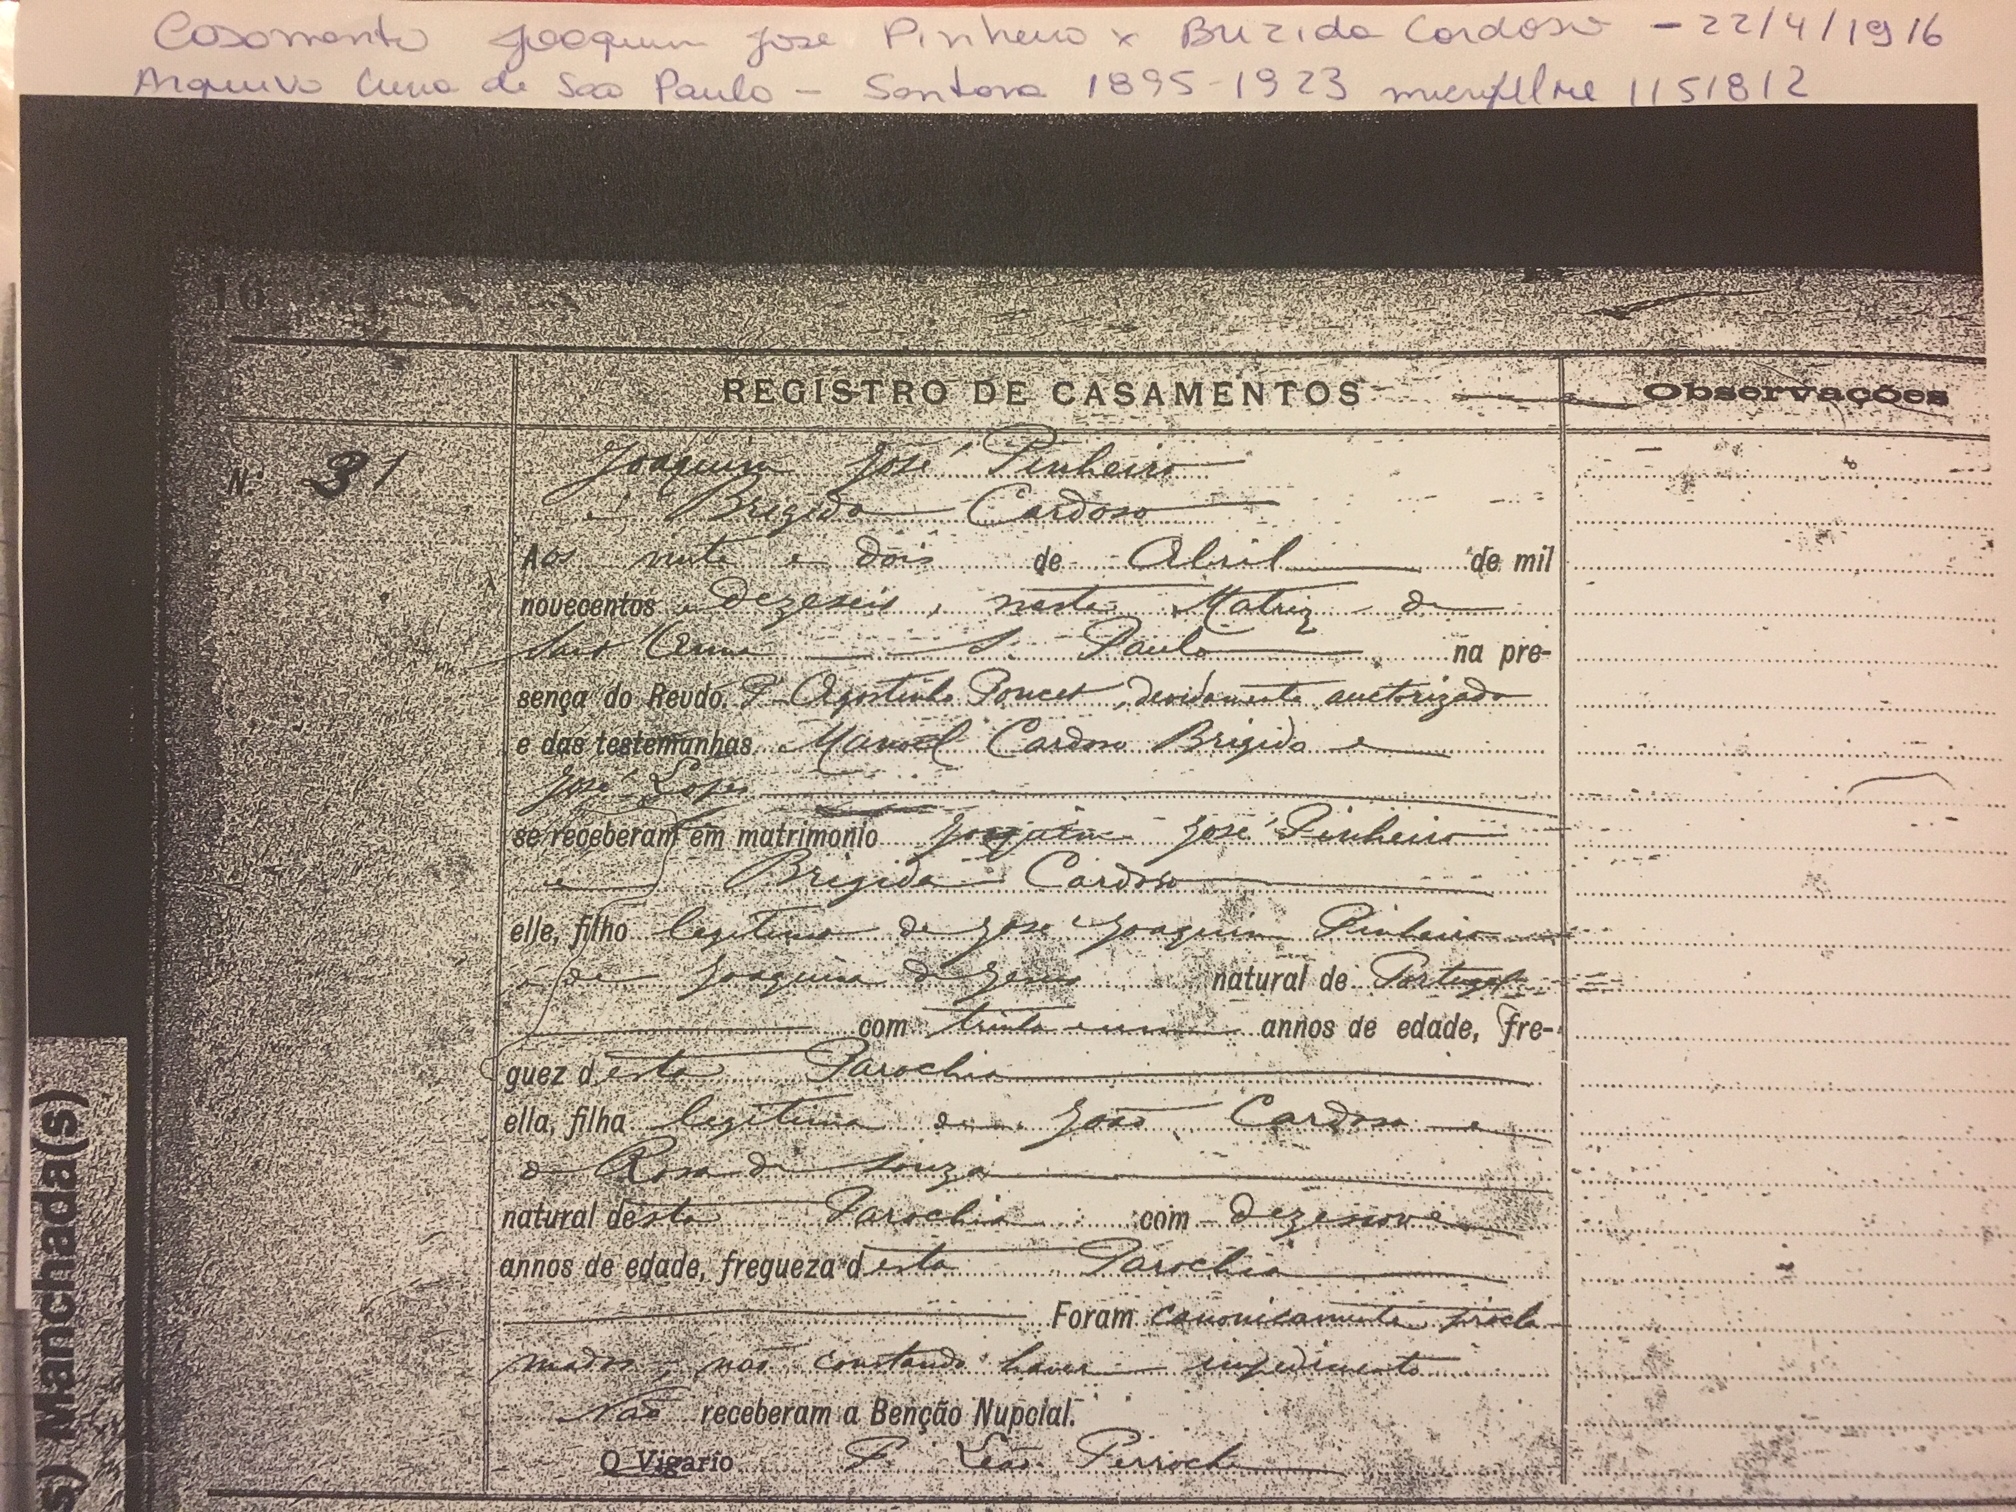 Casamento Joaquim José Pinheiro x Brizida Cardoso - 22/4/1916
Arquivo Curia de Sao Paulo - Santana 1895-1923 microfilme 1151812
16
REGISTRO DE CASAMENTOS
Observações
N.º 31
Joaquim José Pinheiro
e Brigida Cardoso
Aos vinte e dois de Abril de mil
novecentos e dezeseis, nesta Matriz de
Sant'Anna S. Paulo na pre-
sença do Revdo. P. Agostinho Poncet, devidamente auctorizado
e das testemunhas Manoel Cardoso Brigido e
José Lopes
se receberam em matrimonio Joaquim José Pinheiro
e Brigida Cardoso
elle, filho legitimo de José Joaquim Pinheiro
e de Joaquina de Jesus natural de Portugal
com trinta e um annos de edade, fre-
guez desta Parochia
ella, filha legitima de João Cardoso e
de Rosa de Souza
natural desta Parochia com dezenove
annos de edade, fregueza desta Parochia
Foram canonicamente procla-
mados, não constando haver impedimento
Não receberam a Benção Nupcial.
O Vigario P. Leão Perroche
s) Manchada(s)